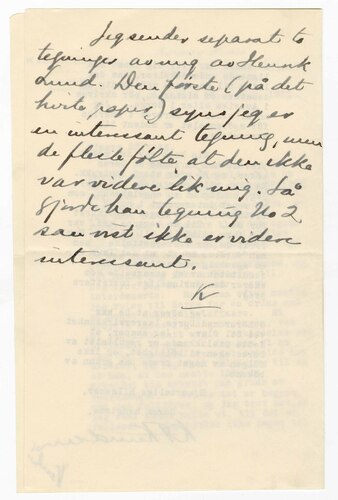 Jeg sender separat to
tegninger av mig av Henrik
Lund. Den første (på det
hvite papir) synes jeg er
en interessant tegning, men
de fleste følte at den ikke
var videre lik mig. Så
gjorde han tegning No 2
som vist ikke er videre
interessant.
K